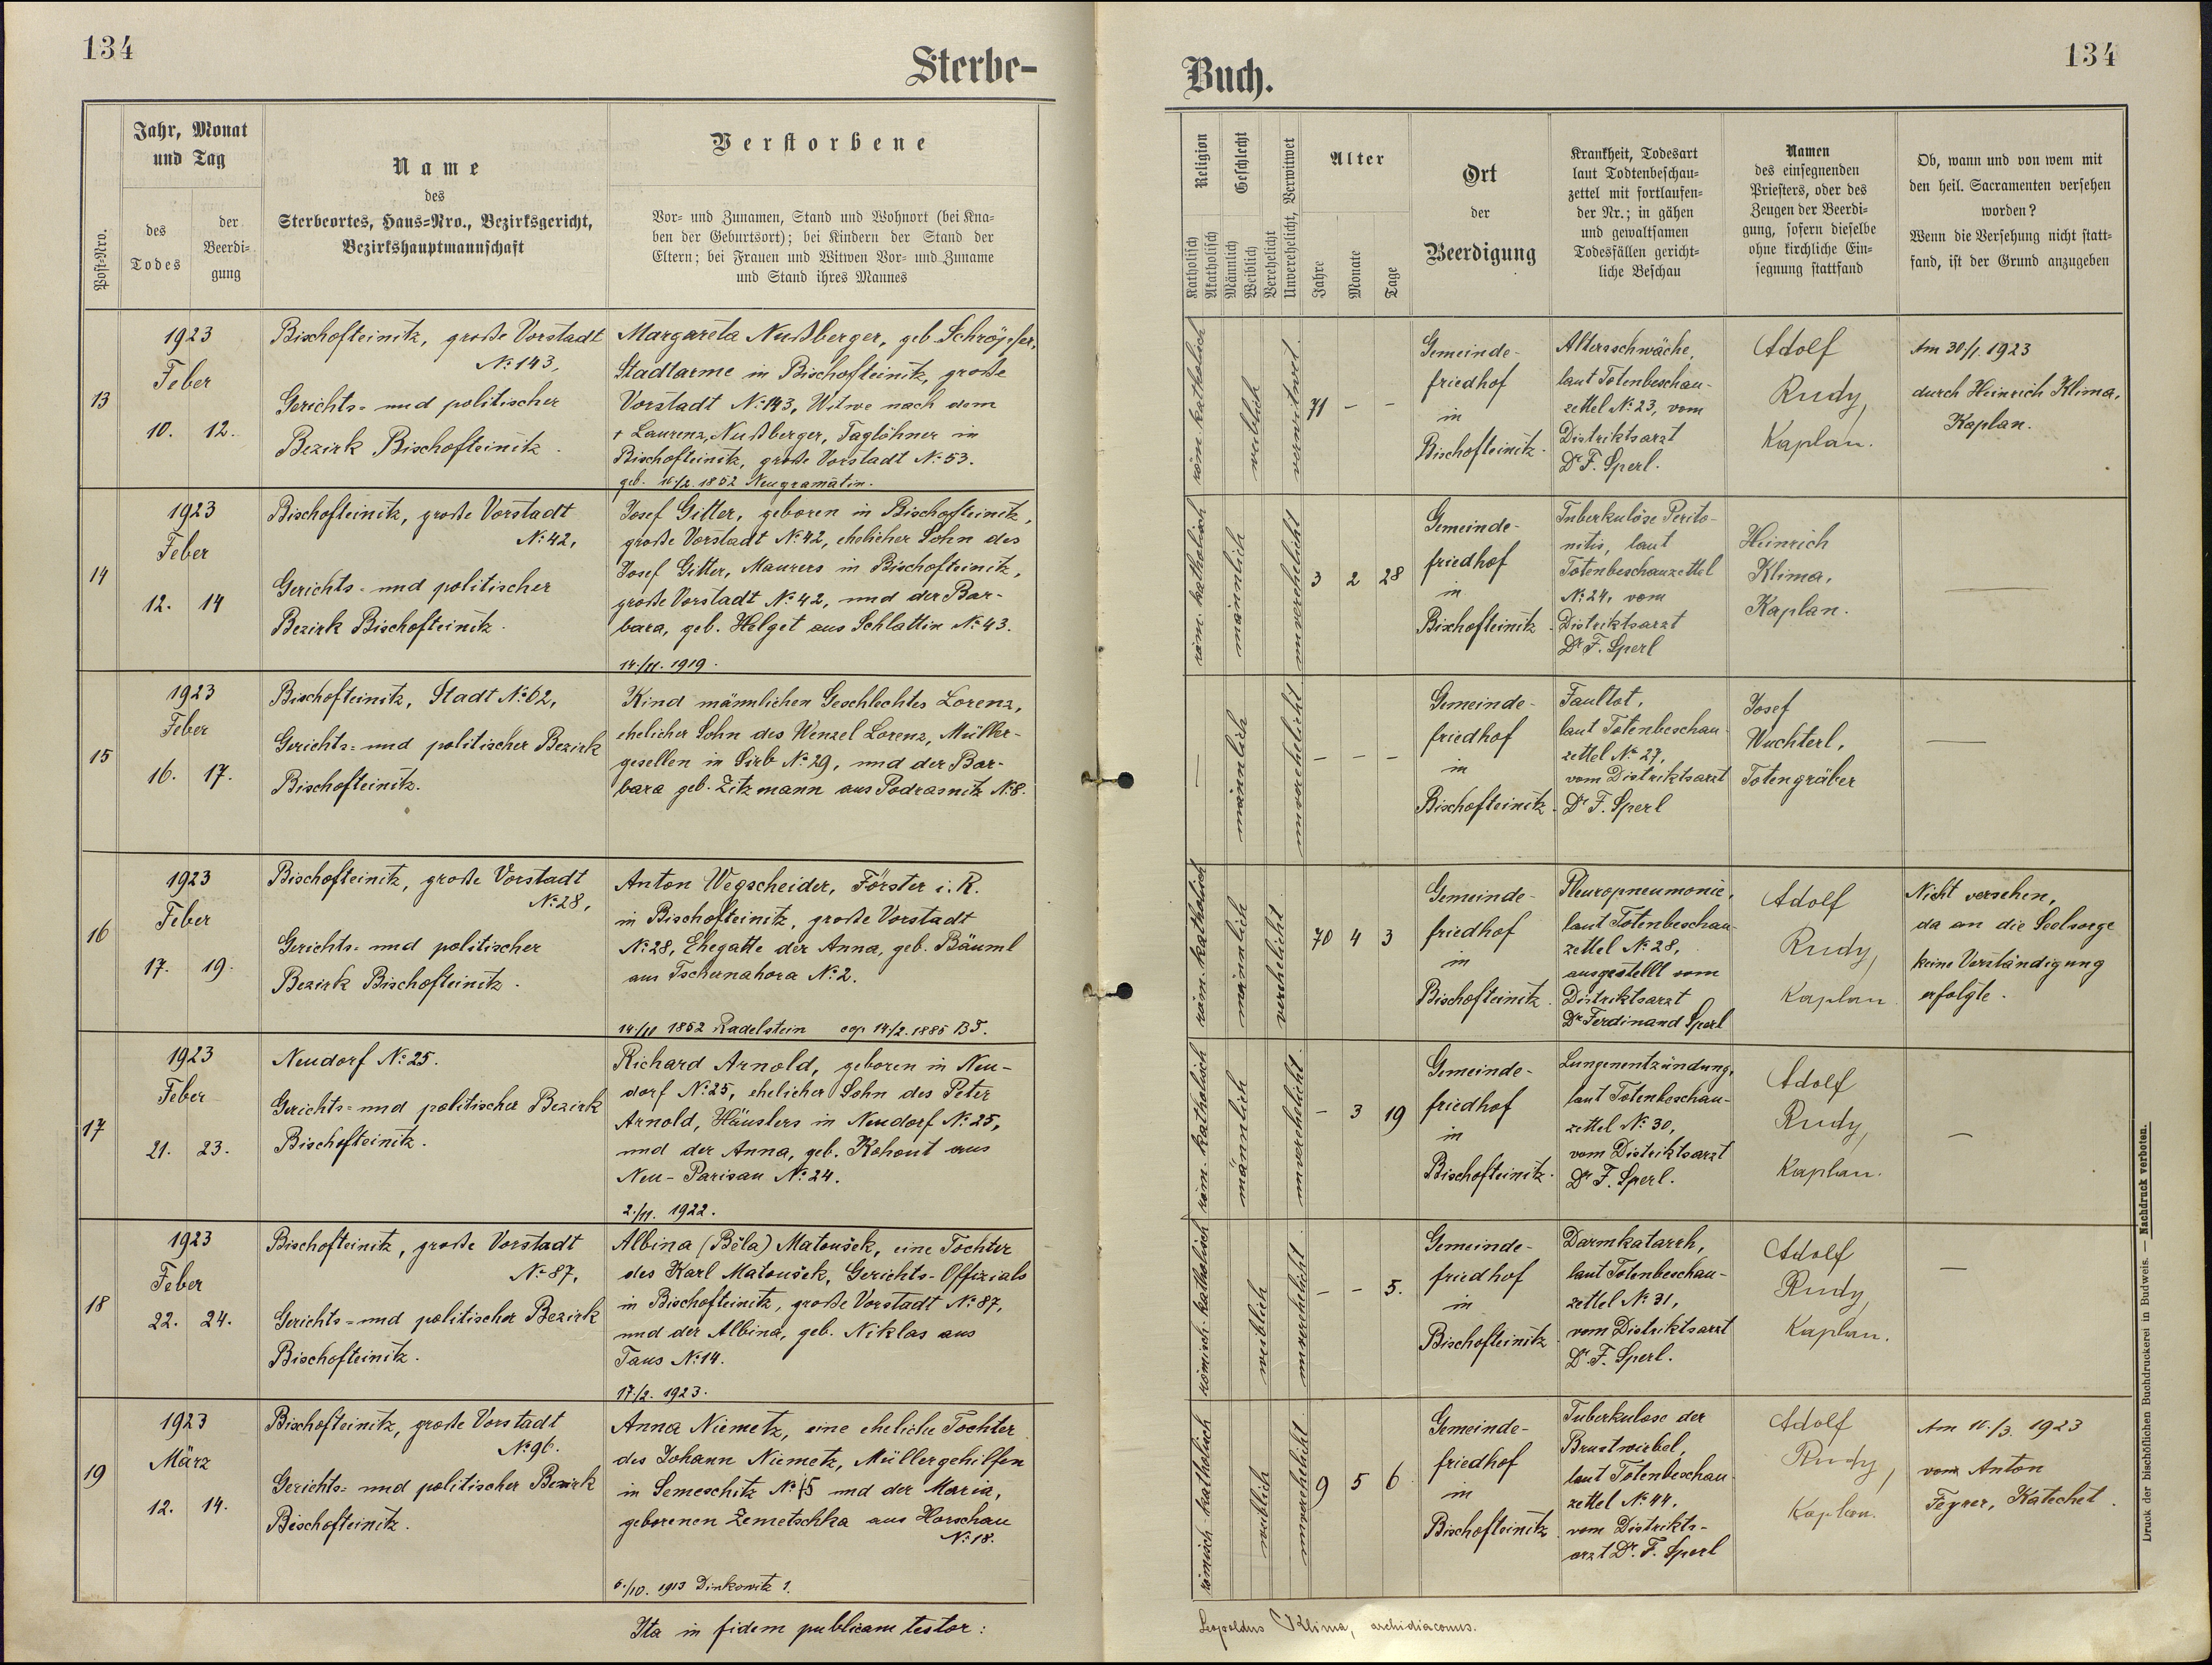 134
Sterbe-
Jahr, Monat
und Tag
Name
des
Sterbeortes, Haus-Nro., Bezirksgericht,
Bezirkshauptmannschaft
Verstorbene
Post-Nro.
des
Todes
der
Beerdi-
gung
Vor- und Zunamen, Stand und Wohnort (bei Kna-
ben der Geburtsort); bei Kindern der Stand der
Eltern; bei Frauen und Witwen Vor- und Zuname
und Stand ihres Mannes
13
1923
Feber
10. 12.
Bischofteinitz, große Vorstadt
№ 143,
Gerichts- und politischer
Bezirk Bischofteinitz.
Margareta Nußberger, geb. Schröpfer,
Stadtarme in Bischofteinitz, große
Vorstadt № 143, Witwe nach dem
† Laurenz Nußberger, Taglöhner in
Bischofteinitz, große Vorstadt № 53.
geb. 1852 Neugramatin.
14
1923
Feber
12. 14
Bischofteinitz, große Vorstadt
№ 42,
Gerichts- und politischer
Bezirk Bischofteinitz.
Josef Gitter, geboren in Bischofteinitz,
große Vorstadt № 42, ehelicher Sohn des
Josef Gitter, Maurers in Bischofteinitz,
große Vorstadt № 42, und der Bar-
bara, geb. Helget aus Schlattin № 43.
14./11. 1919.
15
1923
Feber
16. 17.
Bischofteinitz, Stadt № 62,
Gerichts- und politischer Bezirk
Bischofteinitz.
Kind männlichen Geschlechtes Lorenz,
ehelicher Sohn des Wenzel Lorenz, Müller-
gesellen in Sirb № 29, und der Bar-
bara geb. Zitzmann aus Podrasnitz № 8.
16
1923
Feber
17. 19.
Bischofteinitz, große Vorstadt
№ 28,
Gerichts- und politischer
Bezirk Bischofteinitz.
Anton Wegscheider, Förster i. R.
in Bischofteinitz, große Vorstadt
№ 28, Ehegatte der Anna, geb. Bäuml
aus Tschernahora № 2.
14/11 1852 Radelstein cop. 14/2. 1885 BT.
17
1923
Feber
21. 23.
Neudorf № 25.
Gerichts- und politischer Bezirk
Bischofteinitz.
Richard Arnold, geboren in Neu-
dorf № 25, ehelicher Sohn des Peter
Arnold, Häuslers in Neudorf № 25,
und der Anna, geb. Kohout aus
Neu-Parisau № 24.
2./11. 1922.
18
1923
Feber
22. 24.
Bischofteinitz, große Vorstadt
№ 87,
Gerichts- und politischer Bezirk
Bischofteinitz.
Albina (Běla) Matoušek, eine Tochter
des Karl Matoušek, Gerichts-Offizials
in Bischofteinitz, große Vorstadt № 87,
und der Albina, geb. Niklas aus
Taus № 14.
17./2. 1923.
19
1923
März
12. 14.
Bischofteinitz, große Vorstadt
№ 96.
Gerichts- und politischer Bezirk
Bischofteinitz.
Anna Niemetz, eine eheliche Tochter
des Johann Niemetz, Müllergehilfen
in Semeschitz № 15 und der Maria,
geborenen Zemetschka aus Horschau
№ 18.
6./10. 1913 Dinkowitz 1.
Ita in fidem publicam testor:
Buch.
134
Religion
Geschlecht
Unverehelicht, Verwitwet
Alter
Ort
der
Beerdigung
Krankheit, Todesart
laut Todtenbeschau-
zettel mit fortlaufen-
der Nr.; in gähen
und gewaltsamen
Todesfällen gericht-
liche Beschau
Namen
des einsegnenden
Priesters, oder des
Zeugen der Beerdi-
gung, sofern dieselbe
ohne kirchliche Ein-
segnung stattfand
Ob, wann und von wem mit
den heil. Sacramenten versehen
worden?
Wenn die Versehung nicht statt-
fand, ist der Grund anzugeben
Katholisch
Akatholisch
Männlich
Weiblich
Verehelicht
Jahre
Monate
Tage
röm. katholisch
weiblich
verwitwet.
71 - -
Gemeinde-
friedhof
in
Bischofteinitz.
Altersschwäche,
laut Totenbeschau-
zettel № 23, vom
Distriktsarzt
Dr F. Sperl.
Adolf
Rudy,
Kaplan.
Am 30/1. 1923
durch Heinrich Klima,
Kaplan.
röm. katholisch
männlich
unverehelicht
3 2 28
Gemeinde-
friedhof
in
Bischofteinitz.
Tuberkulöse Perito-
nitis, laut
Totenbeschauzettel
№ 24, vom
Distriktsarzt
Dr F. Sperl
Heinrich
Klima,
Kaplan.
—
—
männlich
unverehelicht
- - -
Gemeinde-
friedhof
in
Bischofteinitz.
Faultot,
laut Totenbeschau-
zettel № 27,
vom Distriktsarzt
Dr F. Sperl
Josef
Wuchterl,
Totengräber
—
röm. katholisch
männlich
verehelicht
70 4 3
Gemeinde-
friedhof
in
Bischofteinitz.
Pleuropneumonie,
laut Totenbeschau-
zettel № 28,
ausgestellt vom
Distriktsarzt
Dr Ferdinand Sperl
Adolf
Rudy,
Kaplan.
Nicht versehen,
da an die Seelsorge
keine Verständigung
erfolgte.
röm. katholisch
männlich
unverehelicht.
- 3 19
Gemeinde-
friedhof
in
Bischofteinitz.
Lungenentzündung,
laut Totenbeschau-
zettel № 30,
vom Distriktsarzt
Dr F. Sperl.
Adolf
Rudy,
Kaplan.
—
römisch-katholisch
weiblich
unverehelicht.
- - 5.
Gemeinde-
friedhof
in
Bischofteinitz
Darmkatarrh,
laut Totenbeschau-
zettel № 31,
vom Distriktsarzt
Dr. F. Sperl.
Adolf
Rudy,
Kaplan.
—
römisch-katholisch
weiblich
unverehelicht.
9 5 6
Gemeinde-
friedhof
in
Bischofteinitz.
Tuberkulose der
Brustwirbel,
laut Totenbeschau-
zettel № 44.
vom Distrikts-
arzt Dr. F. Sperl
Adolf
Rudy,
Kaplan.
Am /3. 1923
vom Anton
Feyrer, Katechet.
Leopoldus Klima, archidiaconus.
Druck der bischöflichen Buchdruckerei in Budweis. — Nachdruck verboten.